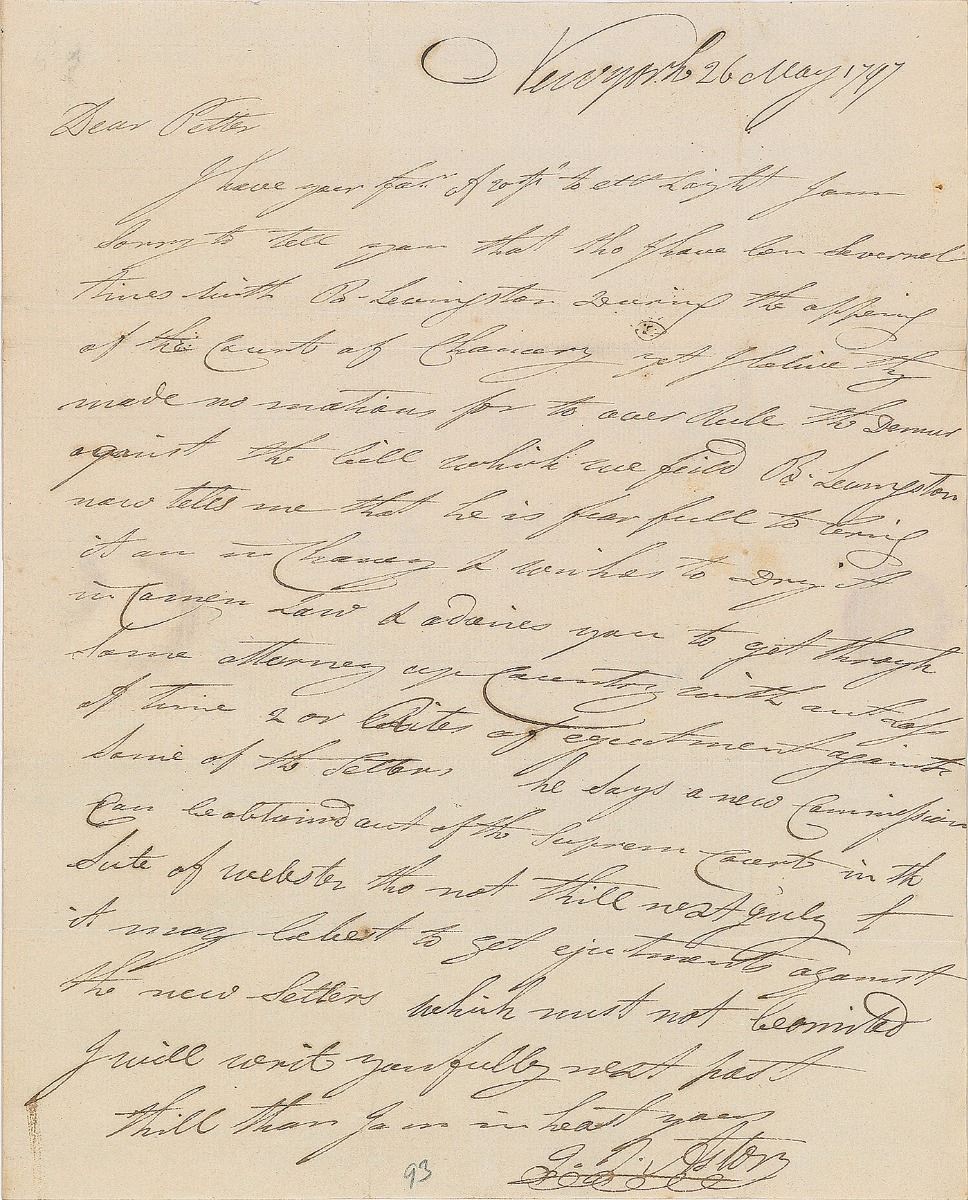 Newyork 26 May 1797
Dear Petter
I have your fav.r of to I am
Sorry to tell you that tho I have ben Severrel
times with B. Lewingston During the oppning
of the Court of Chancery yet I belive thy
made no mations for to over Rule the Demur
against the bill which we feild B. Lewingston
now tells me that he is fear full to bring
it an in Chancy & wishes to it
in Comen Law & advices you to get through
Some attorney up Country with aut Loss
of time 2 or of ejectment against
Some of the Setters he Says a new Commission
Can be obtaind aut of the Suprem Court in th
Sute of webster tho not thill next July &
it may be best to get ejectments against
the new Setters which must not be omited
I will writ you fully next post
thill than I am in hast yours
J. J. Astor
93